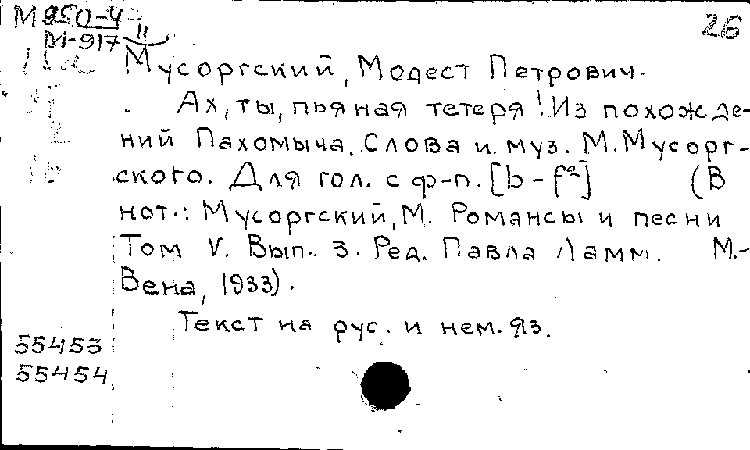 М 950-4
М-917 II
26
Мусоргский, Модест Петрович.
Ах, ты, пьяная тетеря! Из похожде-
ний Пахомыча. Слова и муз. М. Мусорг-
ского. Для гол. с ф-п. [b - f²] (В
нот.: Мусоргский, М. Романсы и песни
Том V. Вып. 3. Ред. Павла Ламм. М.-
Вена, 1933).
Текст на рус. и нем. яз.
55453
55454